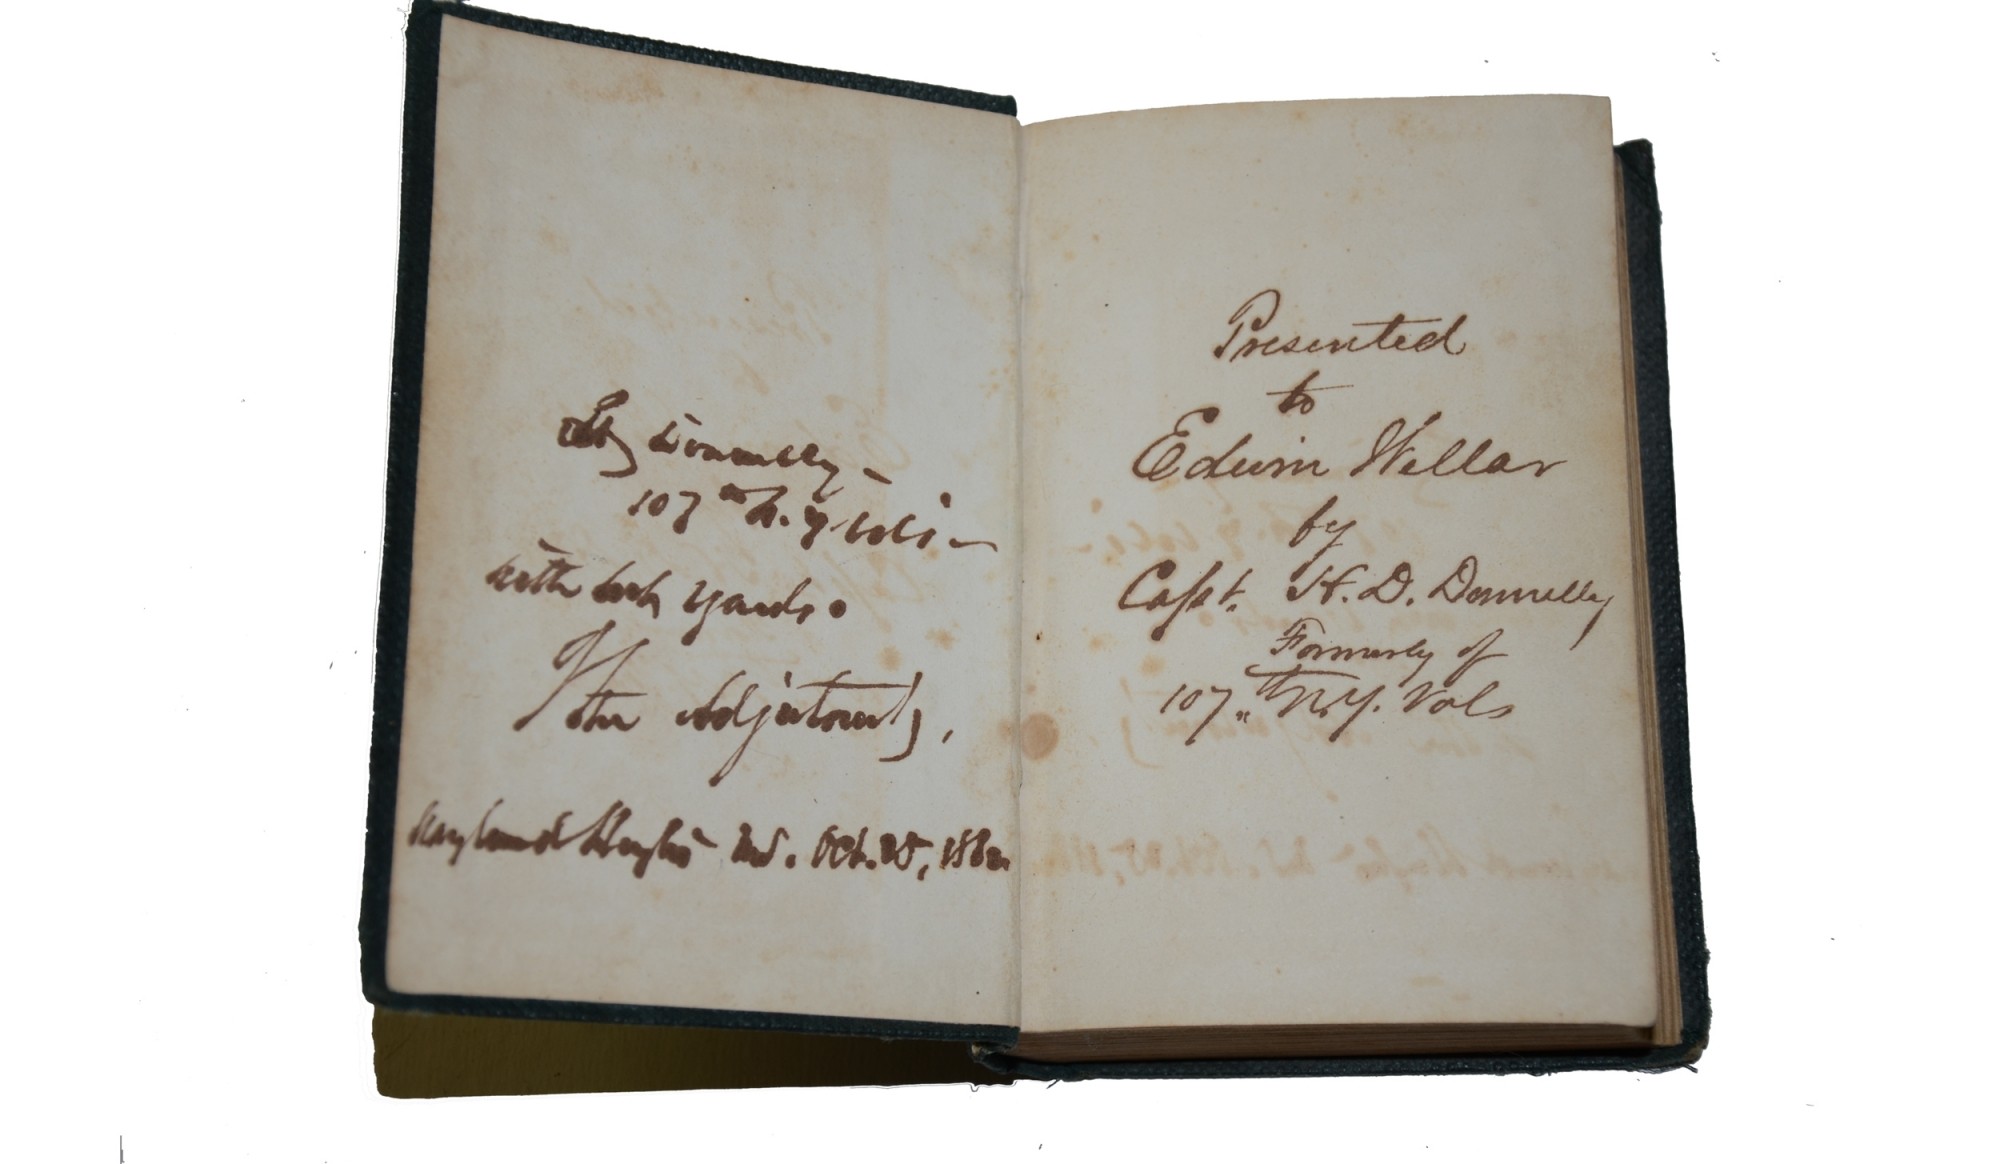 Donnelly –
107th N. Y. Vols –
with
The Adjutant,
Maryland Heights Md. Oct. 25, 1862
Presented
to
Edwin Wellar
by
Capt. H. D. Donnelly
Formerly of
107th N.Y. Vols